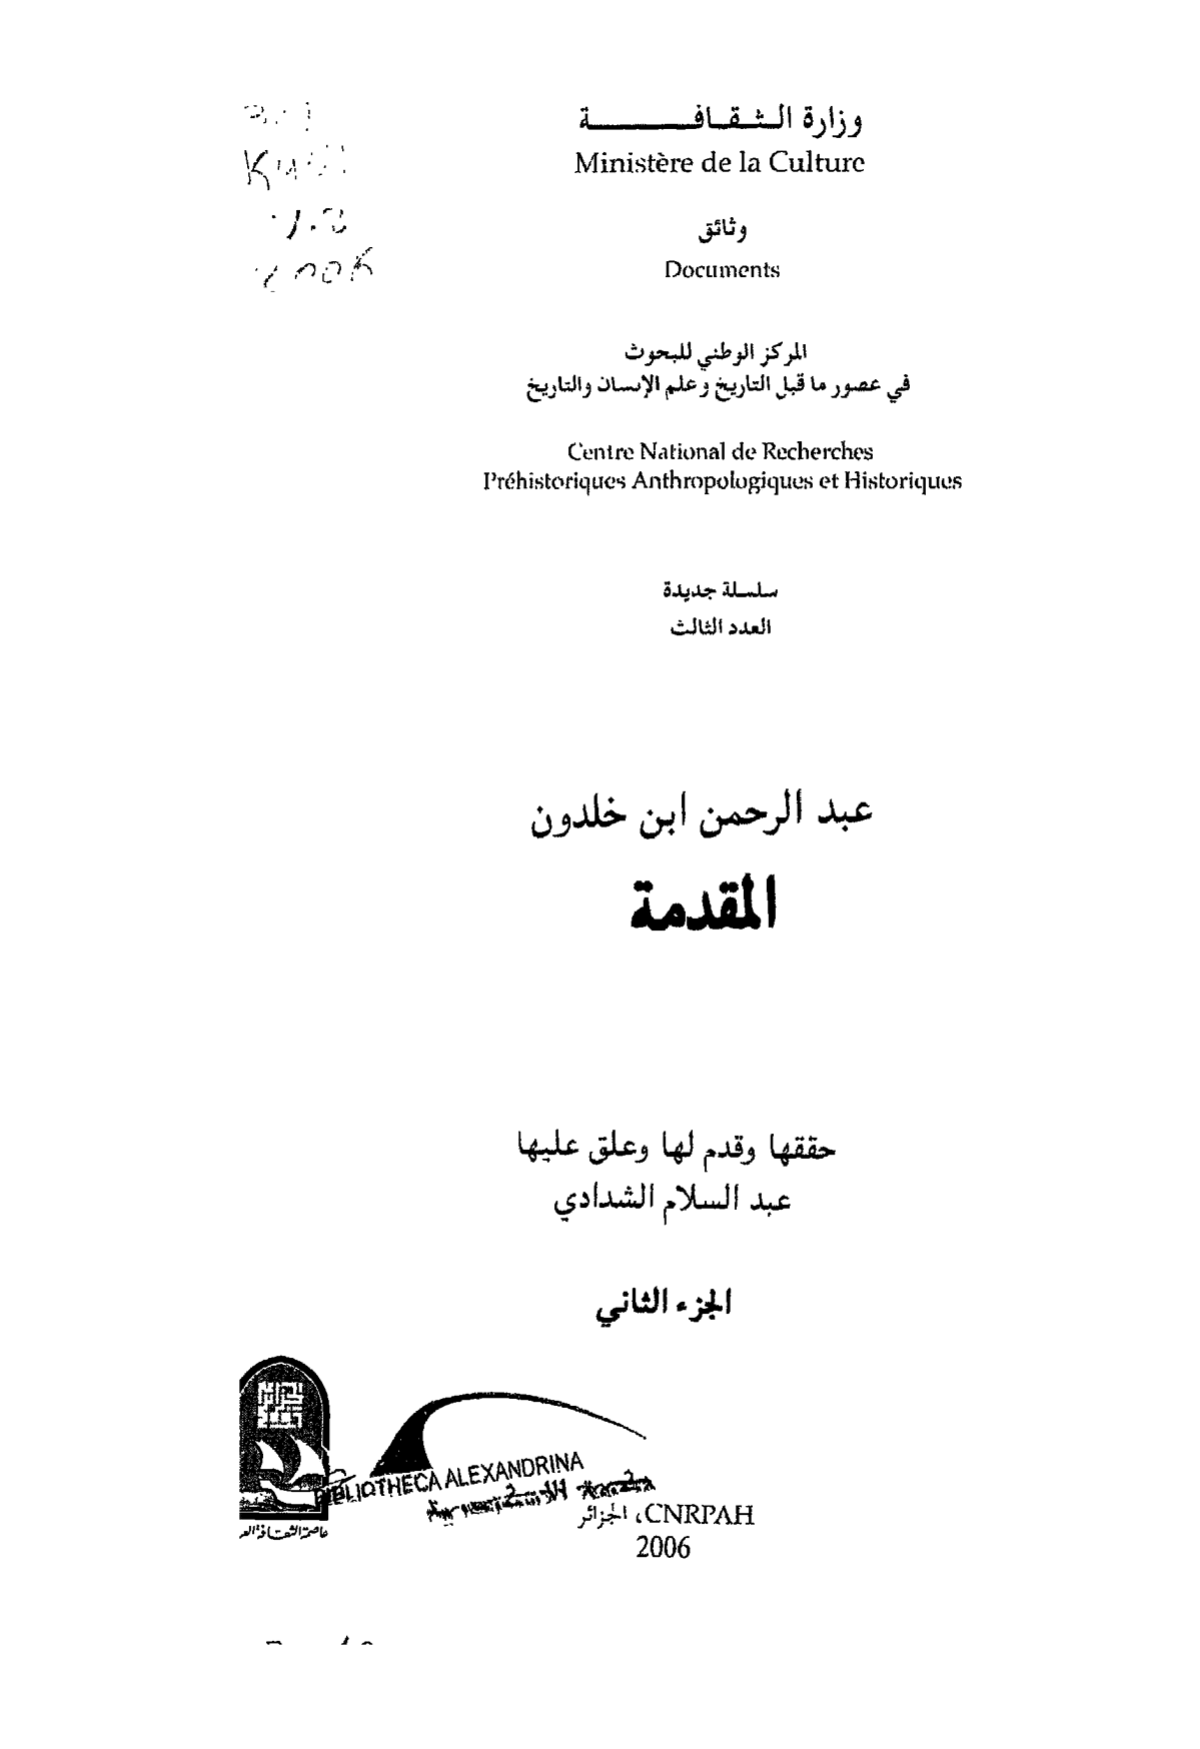 وزارة الثقافة
Ministère de la Culture
وثائق
Documents
المركز الوطني للبحوث
في عصور ما قبل التاريخ وعلم الإنسان والتاريخ
Centre National de Recherches
Préhistoriques Anthropologiques et Historiques
سلسلة جديدة
العدد الثالث
عبد الرحمن ابن خلدون
المقدمة
حققها وقدم لها وعلق عليها
عبد السلام الشدادي
الجزء الثاني
BIBLIOTHECA ALEXANDRINA
CNRPAH، الجزائر
2006